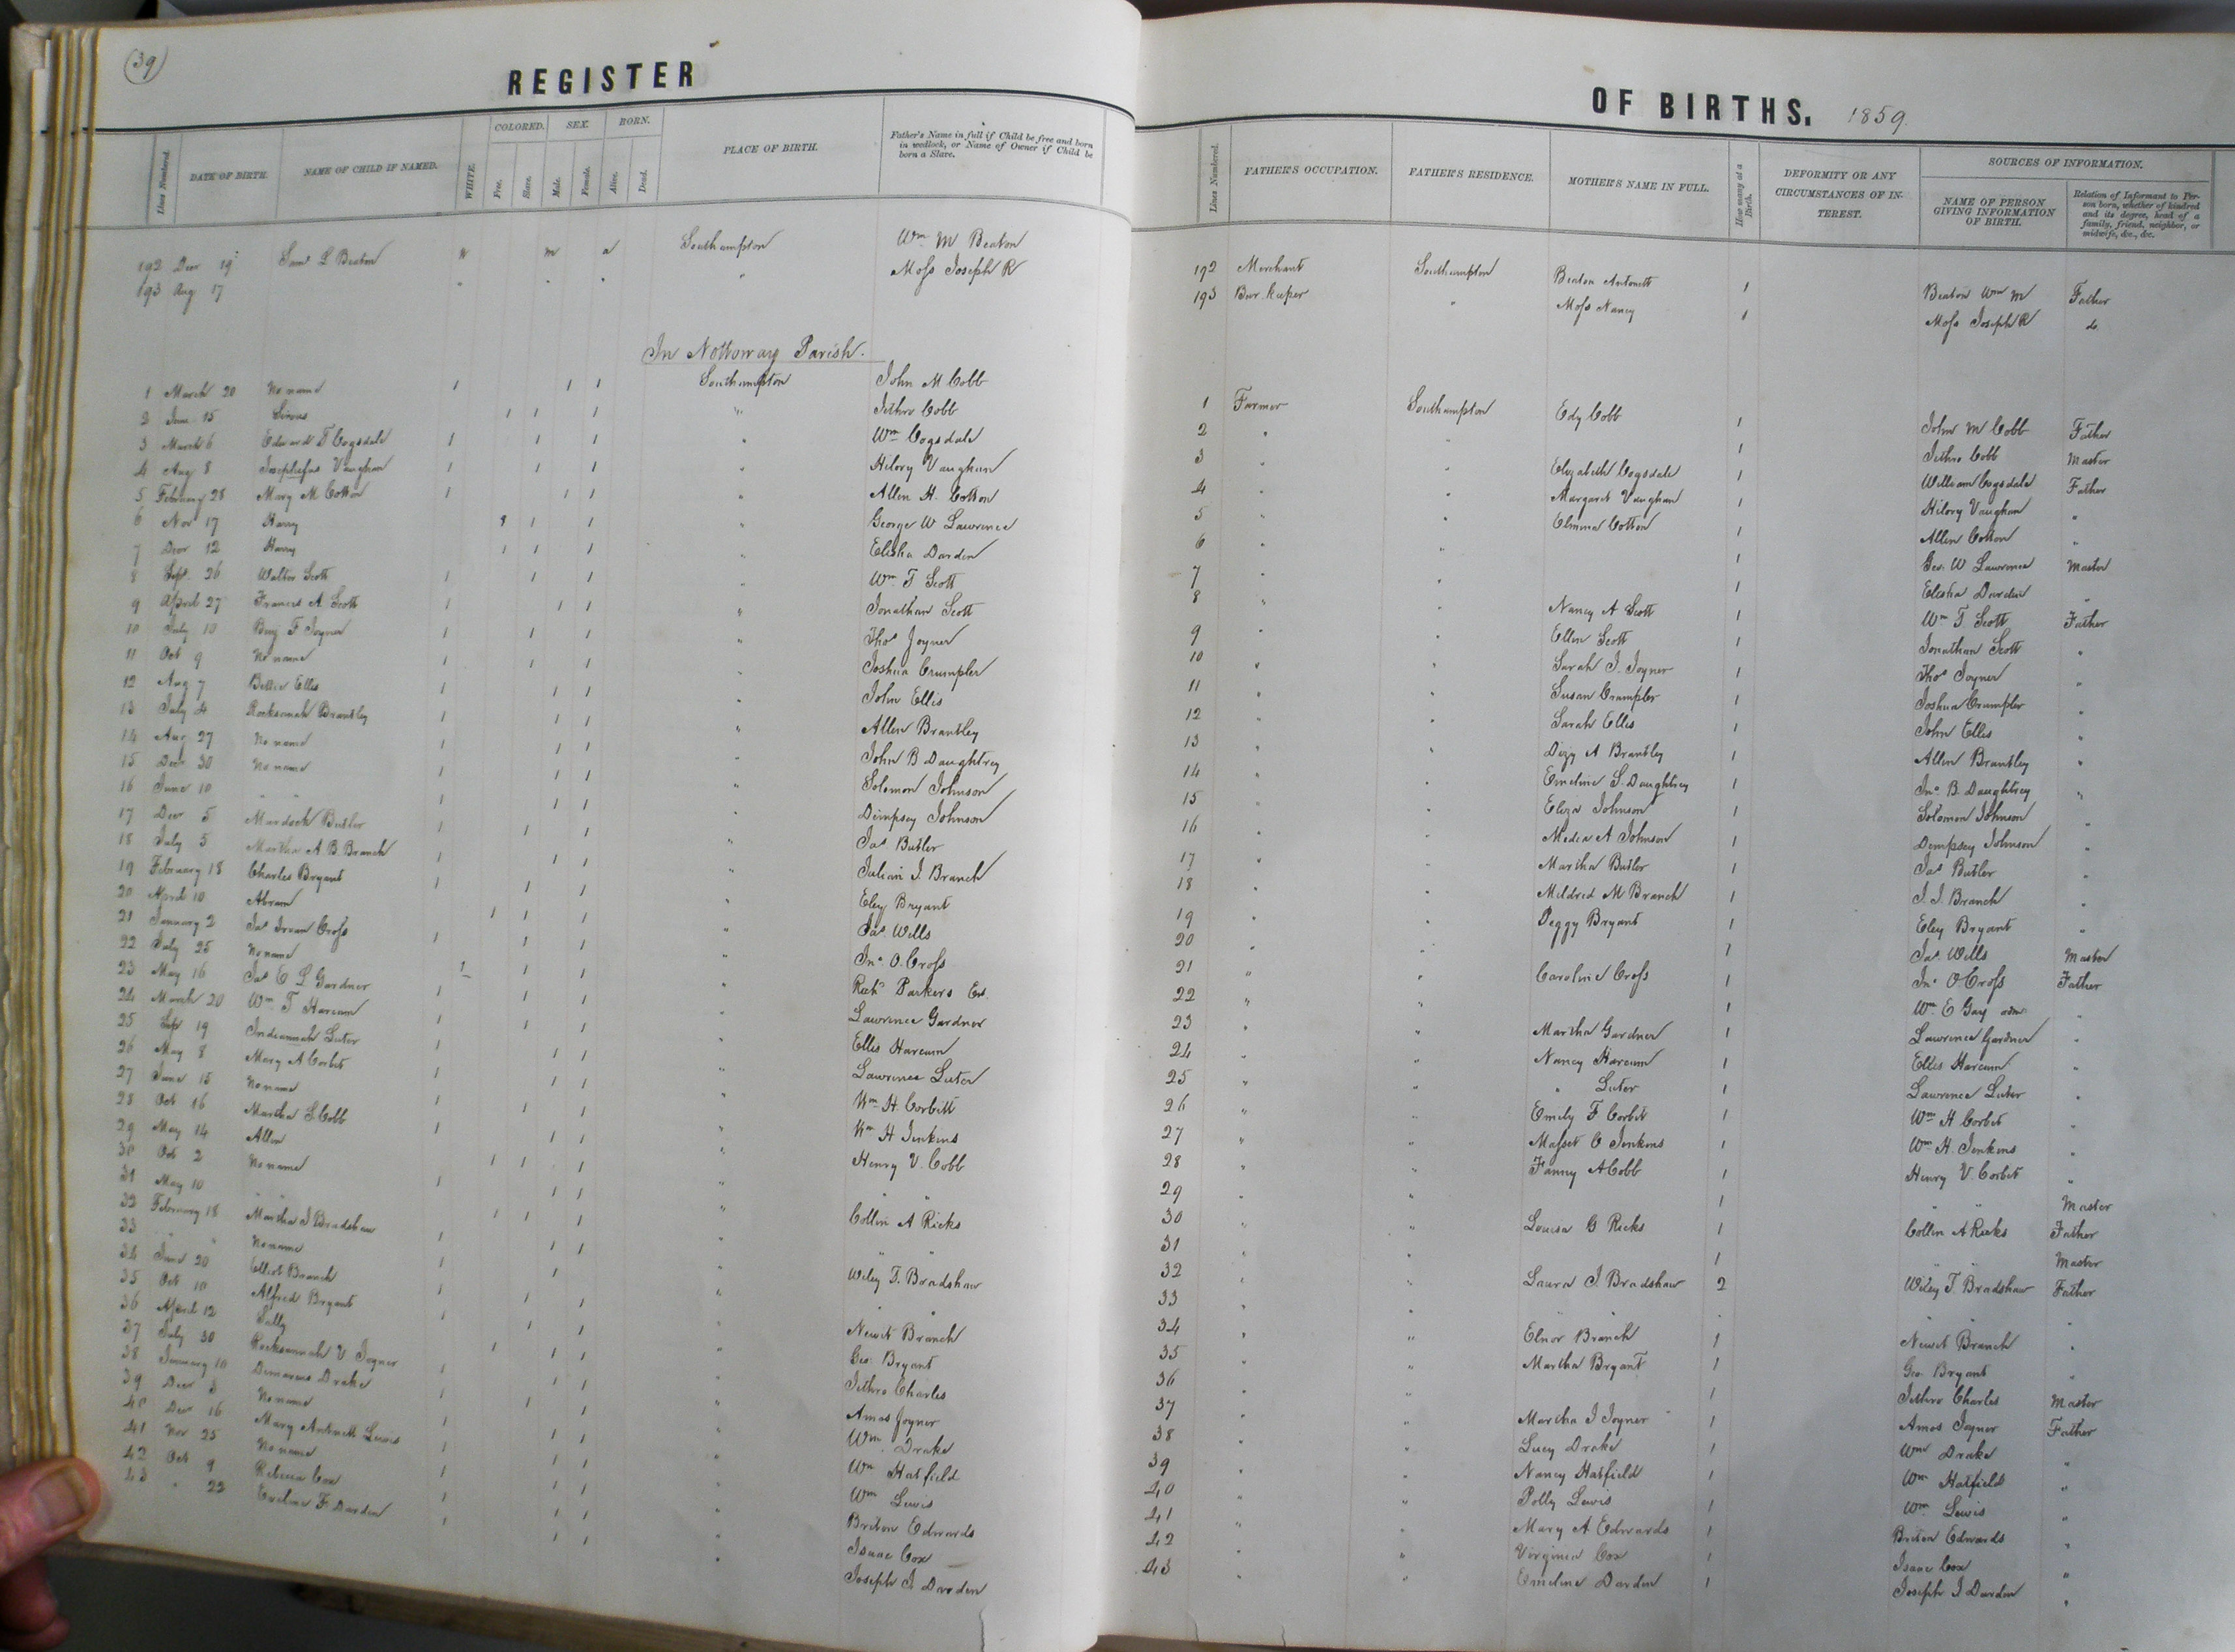 (39)
REGISTER
COLORED. SEX. BORN.
Lines Numbered. DATE OF BIRTH. NAME OF CHILD IF NAMED. WHITE. Free. Slave. Male. Female. Alive. Dead. PLACE OF BIRTH. Father's Name in full if Child be free and born in wedlock, or Name of Owner if Child be born a Slave.
192 Decr 19 Saml L Beaton w m a Southampton Wm M Beaton
193 Aug 17 " " " " Moss Joseph R
In Nottoway Parish.
1 March 20 No name 1 1 1 Southampton John M Cobb
2 June 15 1 1 1 " Jethro Cobb
3 March 6 Edward T Cogsdale 1 1 1 " Wm Cogsdale
4 Aug 8 Josephus Vaughan 1 1 1 " Hilory Vaughan
5 February 28 Mary M Cotton 1 1 1 " Allen H. Cotton
6 Nov 17 Harry 1 1 1 " George W Lawrence
7 Decr 12 Harry 1 1 1 " Elisha Darden
8 Sept. 26 Walter Scott 1 1 1 " Wm T Scott
9 April 27 Frances A. Scott 1 1 1 " Jonathan Scott
10 July 10 Benj F Joyner 1 1 1 " Thos Joyner
11 Oct 9 No name 1 1 1 " Joshua Crumpler
12 Aug 7 Bettie Ellis 1 1 1 " John Ellis
13 July 4 Rocksanah Brantley 1 1 1 " Allen Brantley
14 Aug 27 No name 1 1 1 " John B Daughtrey
15 Decr 30 No name 1 1 1 " Solomon Johnson
16 June 10 " " 1 1 1 " Dempsey Johnson
17 Decr 5 Murdock Butler 1 1 1 " Jas Butler
18 July 5 Martha A B Branch 1 1 1 " Julian J. Branch
19 February 18 Charles Bryant 1 1 1 " Eley Bryant
20 April 10 Abram 1 1 1 " Jas. Wells
21 January 2 Jas Cross 1 1 1 " Jno. O. Cross
22 July 25 No name 1 1 1 " Richd Parkers Est.
23 May 16 Jas E L Gardner 1 1 1 " Lawrence Gardner
24 March 20 Wm T Harcum 1 1 1 " Ellis Harcum
25 Sep 19 Indiannah Luter 1 1 1 " Lawrence Luter
26 May 8 Mary A Corbit 1 1 1 " Wm H. Corbitt
27 June 15 No name 1 1 1 " Wm H Jenkins
28 Oct 16 Martha S. Cobb 1 1 1 " Henry V. Cobb
29 May 14 Allen 1 1 1 " " "
30 Oct 2 No name 1 1 1 " Collin A Ricks
31 May 10 " " 1 1 1 " " "
32 February 18 Martha J Bradshaw 1 1 1 " Wiley T. Bradshaw
33 " " No name 1 1 " " "
34 June 20 Elliot Branch 1 1 1 " Newit Branch
35 Oct 10 Alfred Bryant 1 1 1 " Geo. Bryant
36 April 12 Sally 1 1 1 " Jethro Charles
37 July 30 Rocksannah V Joyner 1 1 1 " Amos Joyner
38 January 10 Drake 1 1 1 " Wm Drake
39 Decr 3 No name 1 1 1 " Wm Hatfield
40 Decr 16 Mary Antinett Lewis 1 1 1 " Wm Lewis
41 Nov 25 No name 1 1 1 " Briton Edwards
42 Oct 9 Rebecca Cox 1 1 1 " Isaac Cox
43 " 22 Eveline F Darden 1 1 1 " Joseph J. Darden
OF BIRTHS. 1859.
Lines Numbered. FATHER'S OCCUPATION. FATHER'S RESIDENCE. MOTHER'S NAME IN FULL. How many at a Birth. DEFORMITY OR ANY CIRCUMSTANCES OF INTEREST. SOURCES OF INFORMATION.
NAME OF PERSON GIVING INFORMATION OF BIRTH. Relation of Informant to Person born, whether of kindred and its degree, head of a family, friend, neighbor, or midwife, &c., &c.
192 Merchant Southampton Beaton Antonett 1 Beaton Wm M Father
193 Bar keeper " Moss Nancy 1 Moss Joseph R do
1 Farmer Southampton Edy Cobb 1 John M Cobb Father
2 " " 1 Jethro Cobb Master
3 " " Elizabeth Cogsdale 1 William Cogsdale Father
4 " " Margaret Vaughan 1 Hilory Vaughan "
5 " " Cotton 1 Allen Cotton "
6 " " 1 Geo. W Lawrence Master
7 " " 1 Elisha Darden "
8 " " Nancy A Scott 1 Wm T Scott Father
9 " " Ellen Scott 1 Jonathan Scott "
10 " " Sarah J. Joyner 1 Thos Joyner "
11 " " Susan Crumpler 1 Joshua Crumpler "
12 " " Sarah Ellis 1 John Ellis "
13 " " Dizy A Brantley 1 Allen Brantley "
14 " " Emeline S. Daughtrey 1 Jno. B. Daughtrey "
15 " " Eliza Johnson 1 Solomon Johnson "
16 " " Media A Johnson 1 Dempsey Johnson "
17 " " Martha Butler 1 Jas Butler "
18 " " Mildred M Branch 1 J. J. Branch "
19 " " Peggy Bryant 1 Eley Bryant "
20 " " 1 Jas. Wells Master
21 " " Caroline Cross 1 Jno O. Cross Father
22 " " 1 Wm E Gay adm "
23 " " Martha Gardner 1 Lawrence Gardner "
24 " " Nancy Harcum 1 Ellis Harcum "
25 " " " Luter 1 Lawrence Luter "
26 " " Emily F Corbit 1 Wm H Corbit "
27 " " C Jenkins 1 Wm H. Jenkins "
28 " " Fanny A Cobb 1 Henry V. Corbit "
29 " " 1 " " Master
30 " " Louisa G Ricks 1 Collin A Ricks Father
31 " " 1 " " Master
32 " " Laura J. Bradshaw 2 Wiley T. Bradshaw Father
33 " " " " " " "
34 " " Elnor Branch 1 Newit Branch "
35 " " Martha Bryant 1 Geo. Bryant "
36 " " 1 Jethro Charles Master
37 " " Martha J Joyner 1 Amos Joyner Father
38 " " Lucy Drake 1 Wm Drake "
39 " " Nancy Hatfield 1 Wm Hatfield "
40 " " Polly Lewis 1 Wm Lewis "
41 " " Mary A Edwards 1 Briton Edwards "
42 " " Virginia Cox 1 Isaac Cox "
43 " " Emeline Darden 1 Joseph J Darden "